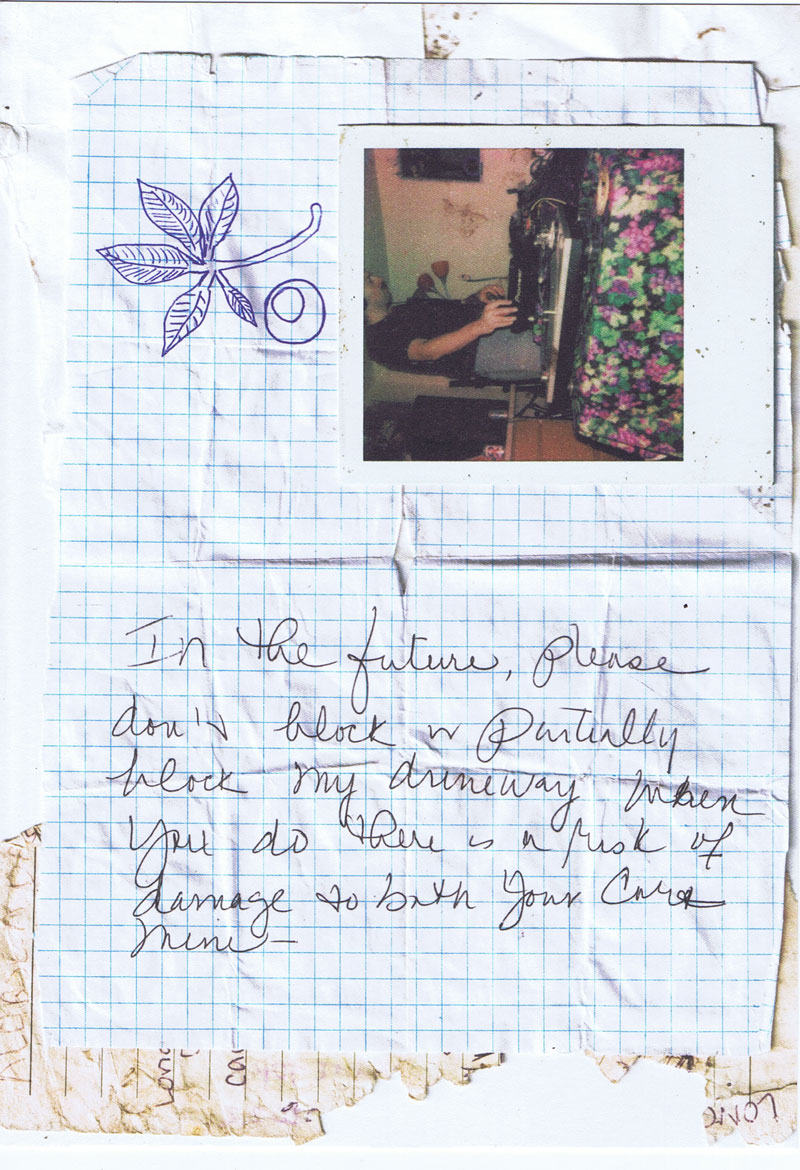 In the future, please
don't block or partially
block my driveway when
you do there is a risk of
damage to both your car &
mine —